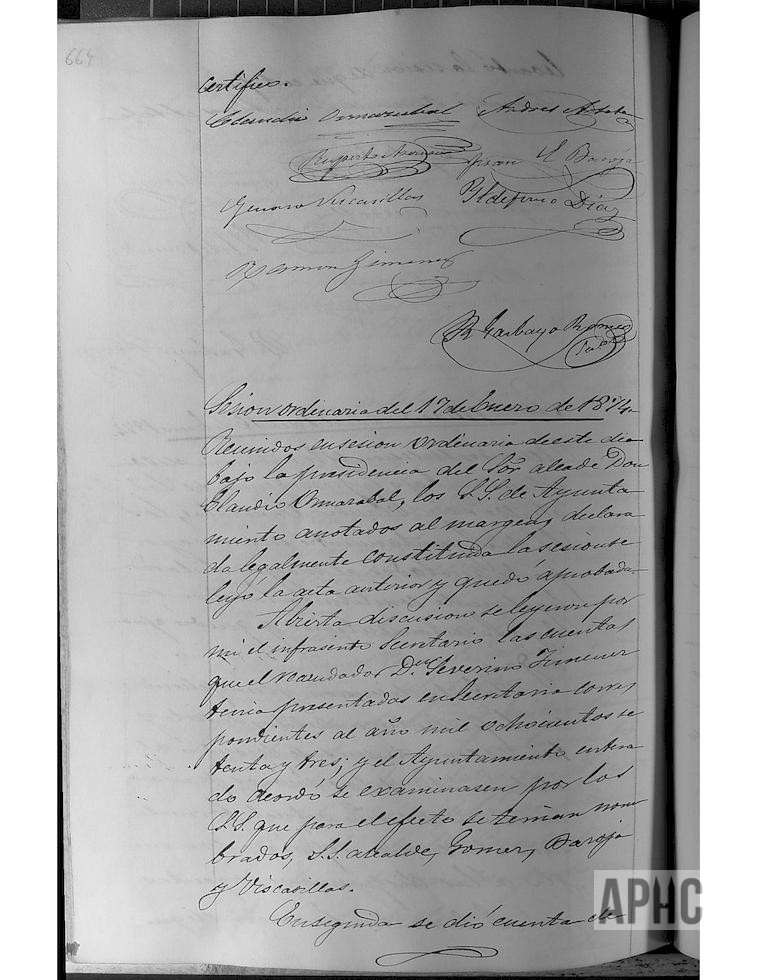 664
certifico.
Claudio Omarrabal Andres
Ruperto Juan M. Baroja
Genaro Viscasillas Yldefonso Diaz
Ramon Gimenez
R Garbayo Romeo
Srio
Sesion ordinaria del 17 de Enero de 1874-
Reunidos en sesion ordinaria de este dia
bajo la presidencia del Sor. alcade Don
Claudio Omarabal, los S.S. de Ayunta
miento anotados al margen, declara
da legalmente constituida la sesion se
leyó la acta anterior y quedó aprobada.
Abierta discusion se leyeron por
mi el infrascrito Secretario las cuentas
que el recaudador Dn. Severino Jimenez
tenia presentadas en secretaria corres
pondientes al año mil ochocientos se
tenta y tres; y el Ayuntamiento entera
do acordó se examinasen por los
S.S. que para el efecto se tenian nom
brados, S.S. alcalde, Gomez, Baroja
y Viscasillas.
En seguida se dió cuenta de
APHC